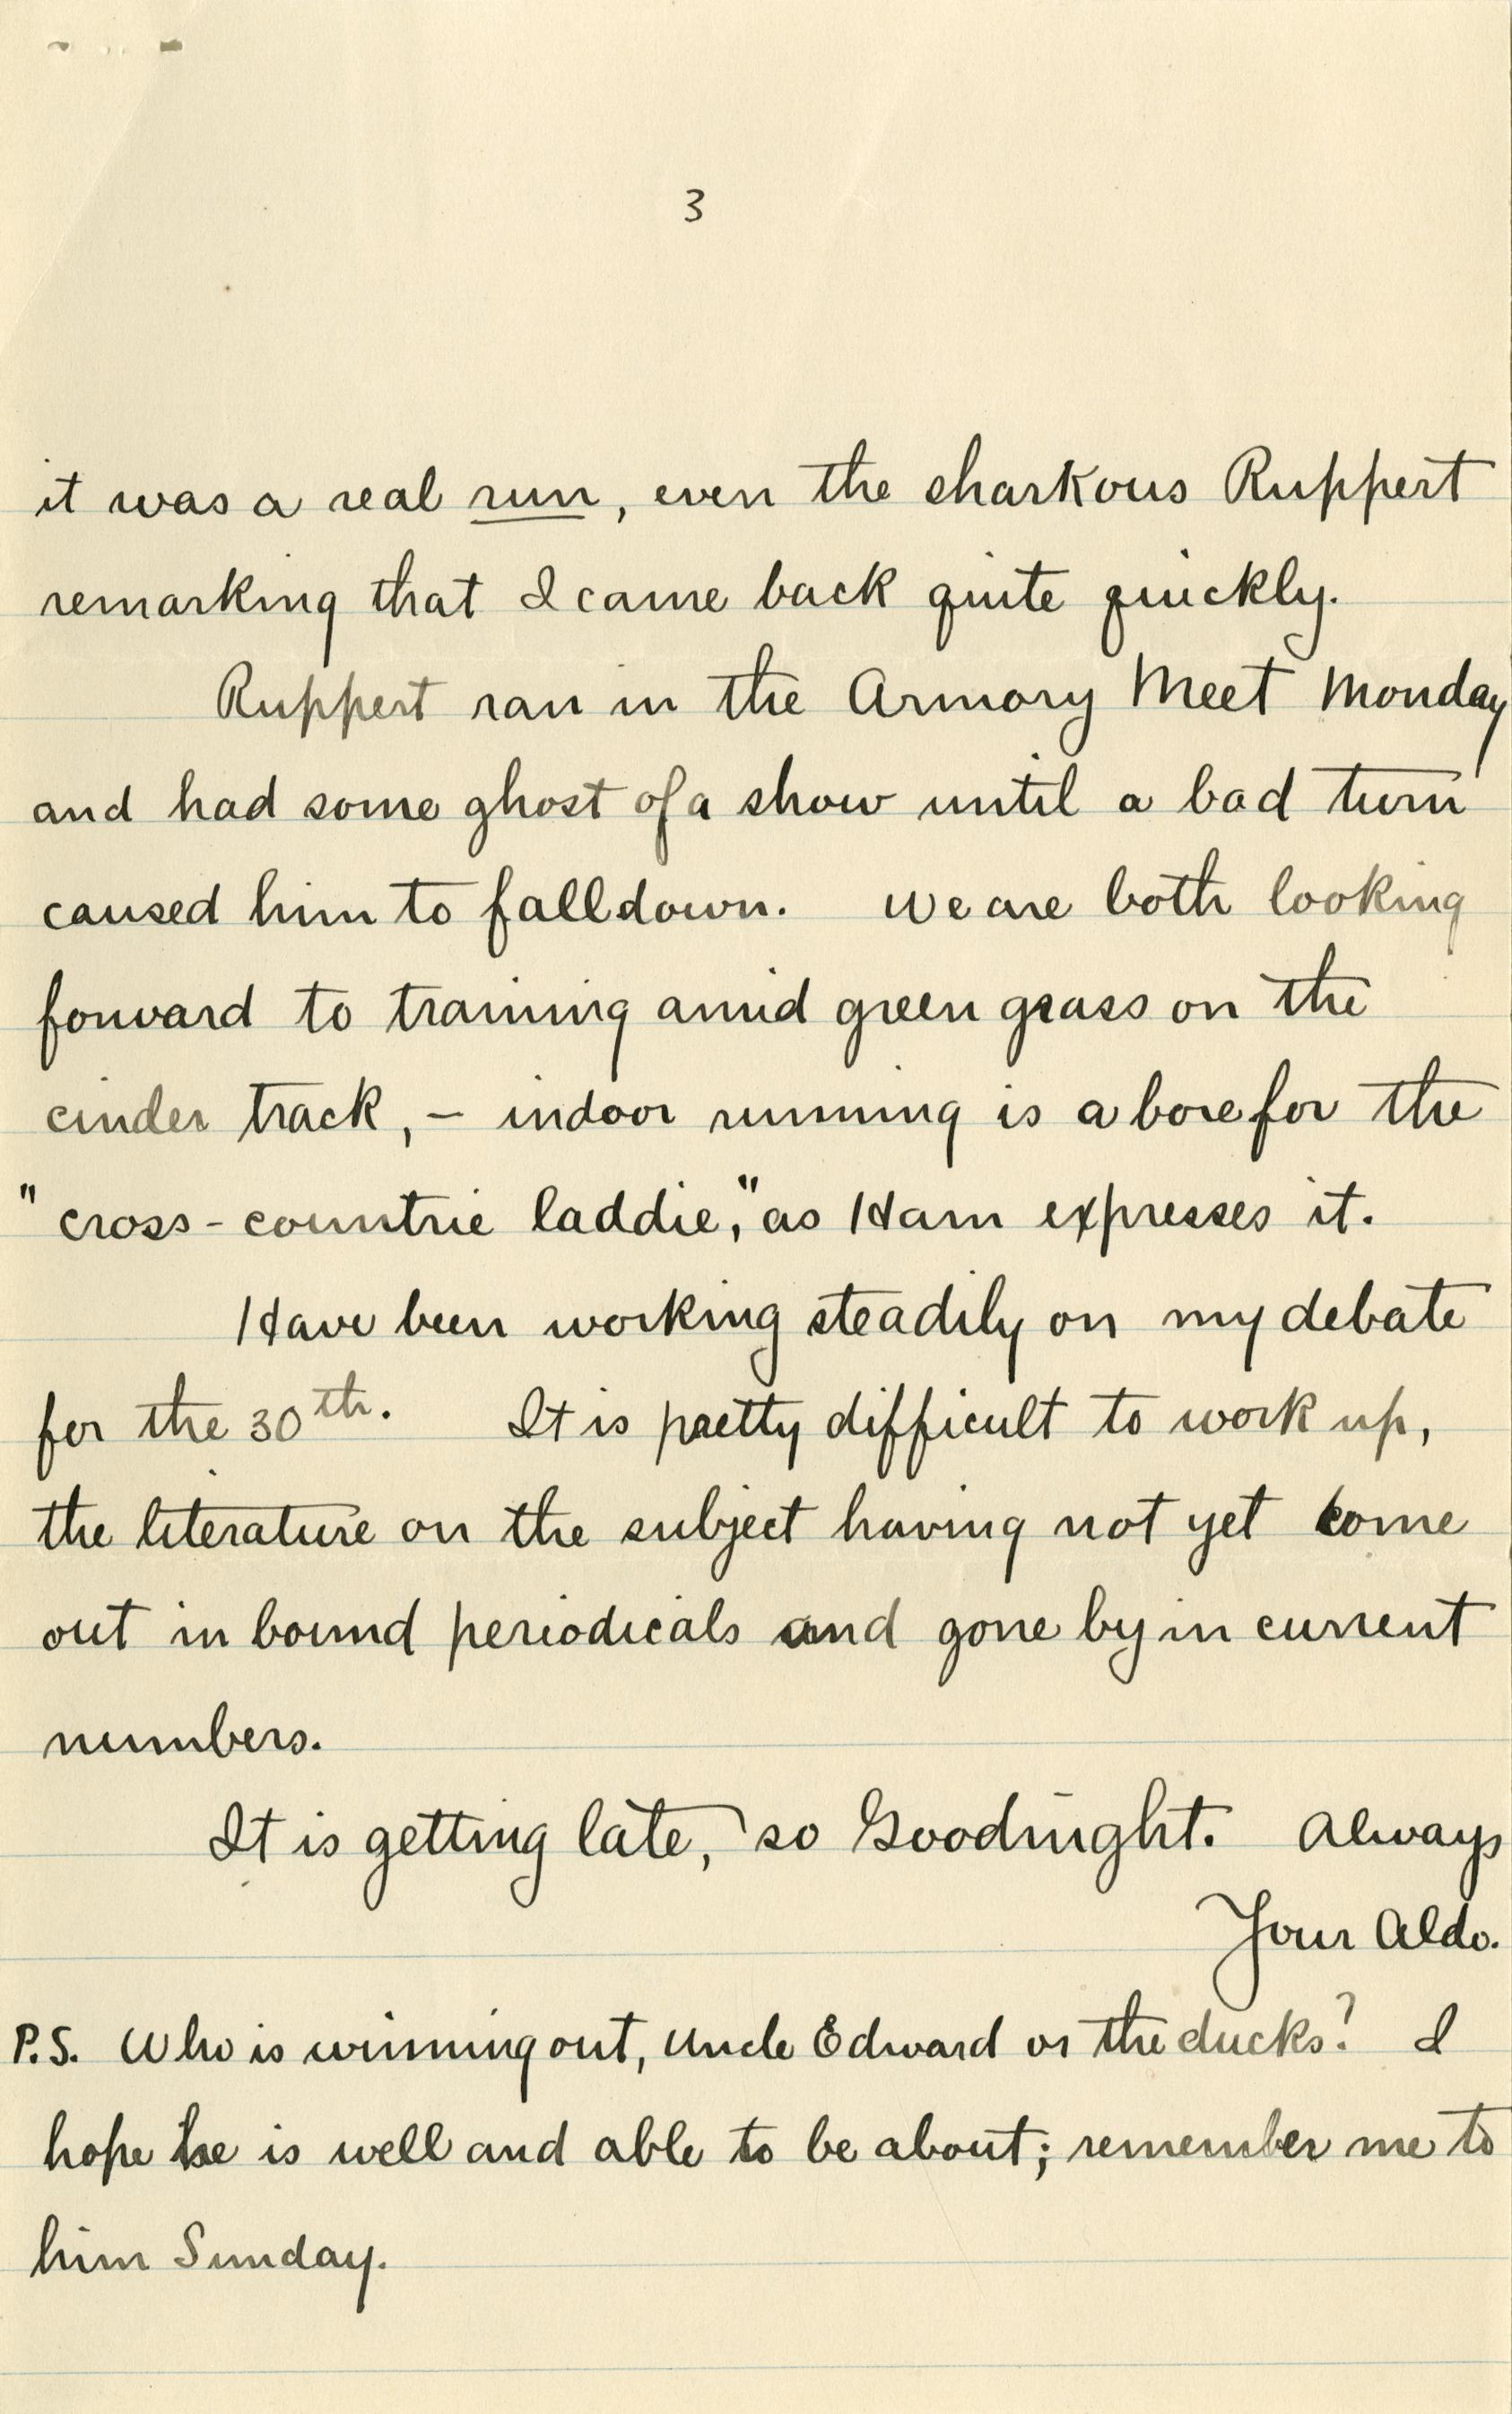 3
it was a real run, even the sharkous Ruppert
remarking that I came back quite quickly.
Ruppert ran in the Armory Meet Monday
and had some ghost of a show until a bad turn
caused him to fall down. We are both looking
forward to training amid green grass on the
cinder track, – indoor running is a bore for the
"cross-countrie laddie," as Ham expresses it.
Have been working steadily on my debate
for the 30th. It is pretty difficult to work up,
the literature on the subject having not yet come
out in bound periodicals and gone by in current
numbers.
It is getting late, so Goodnight. Always
Your Aldo.
P.S. Who is winning out, Uncle Edward or the ducks? I
hope he is well and able to be about; remember me to
him Sunday.